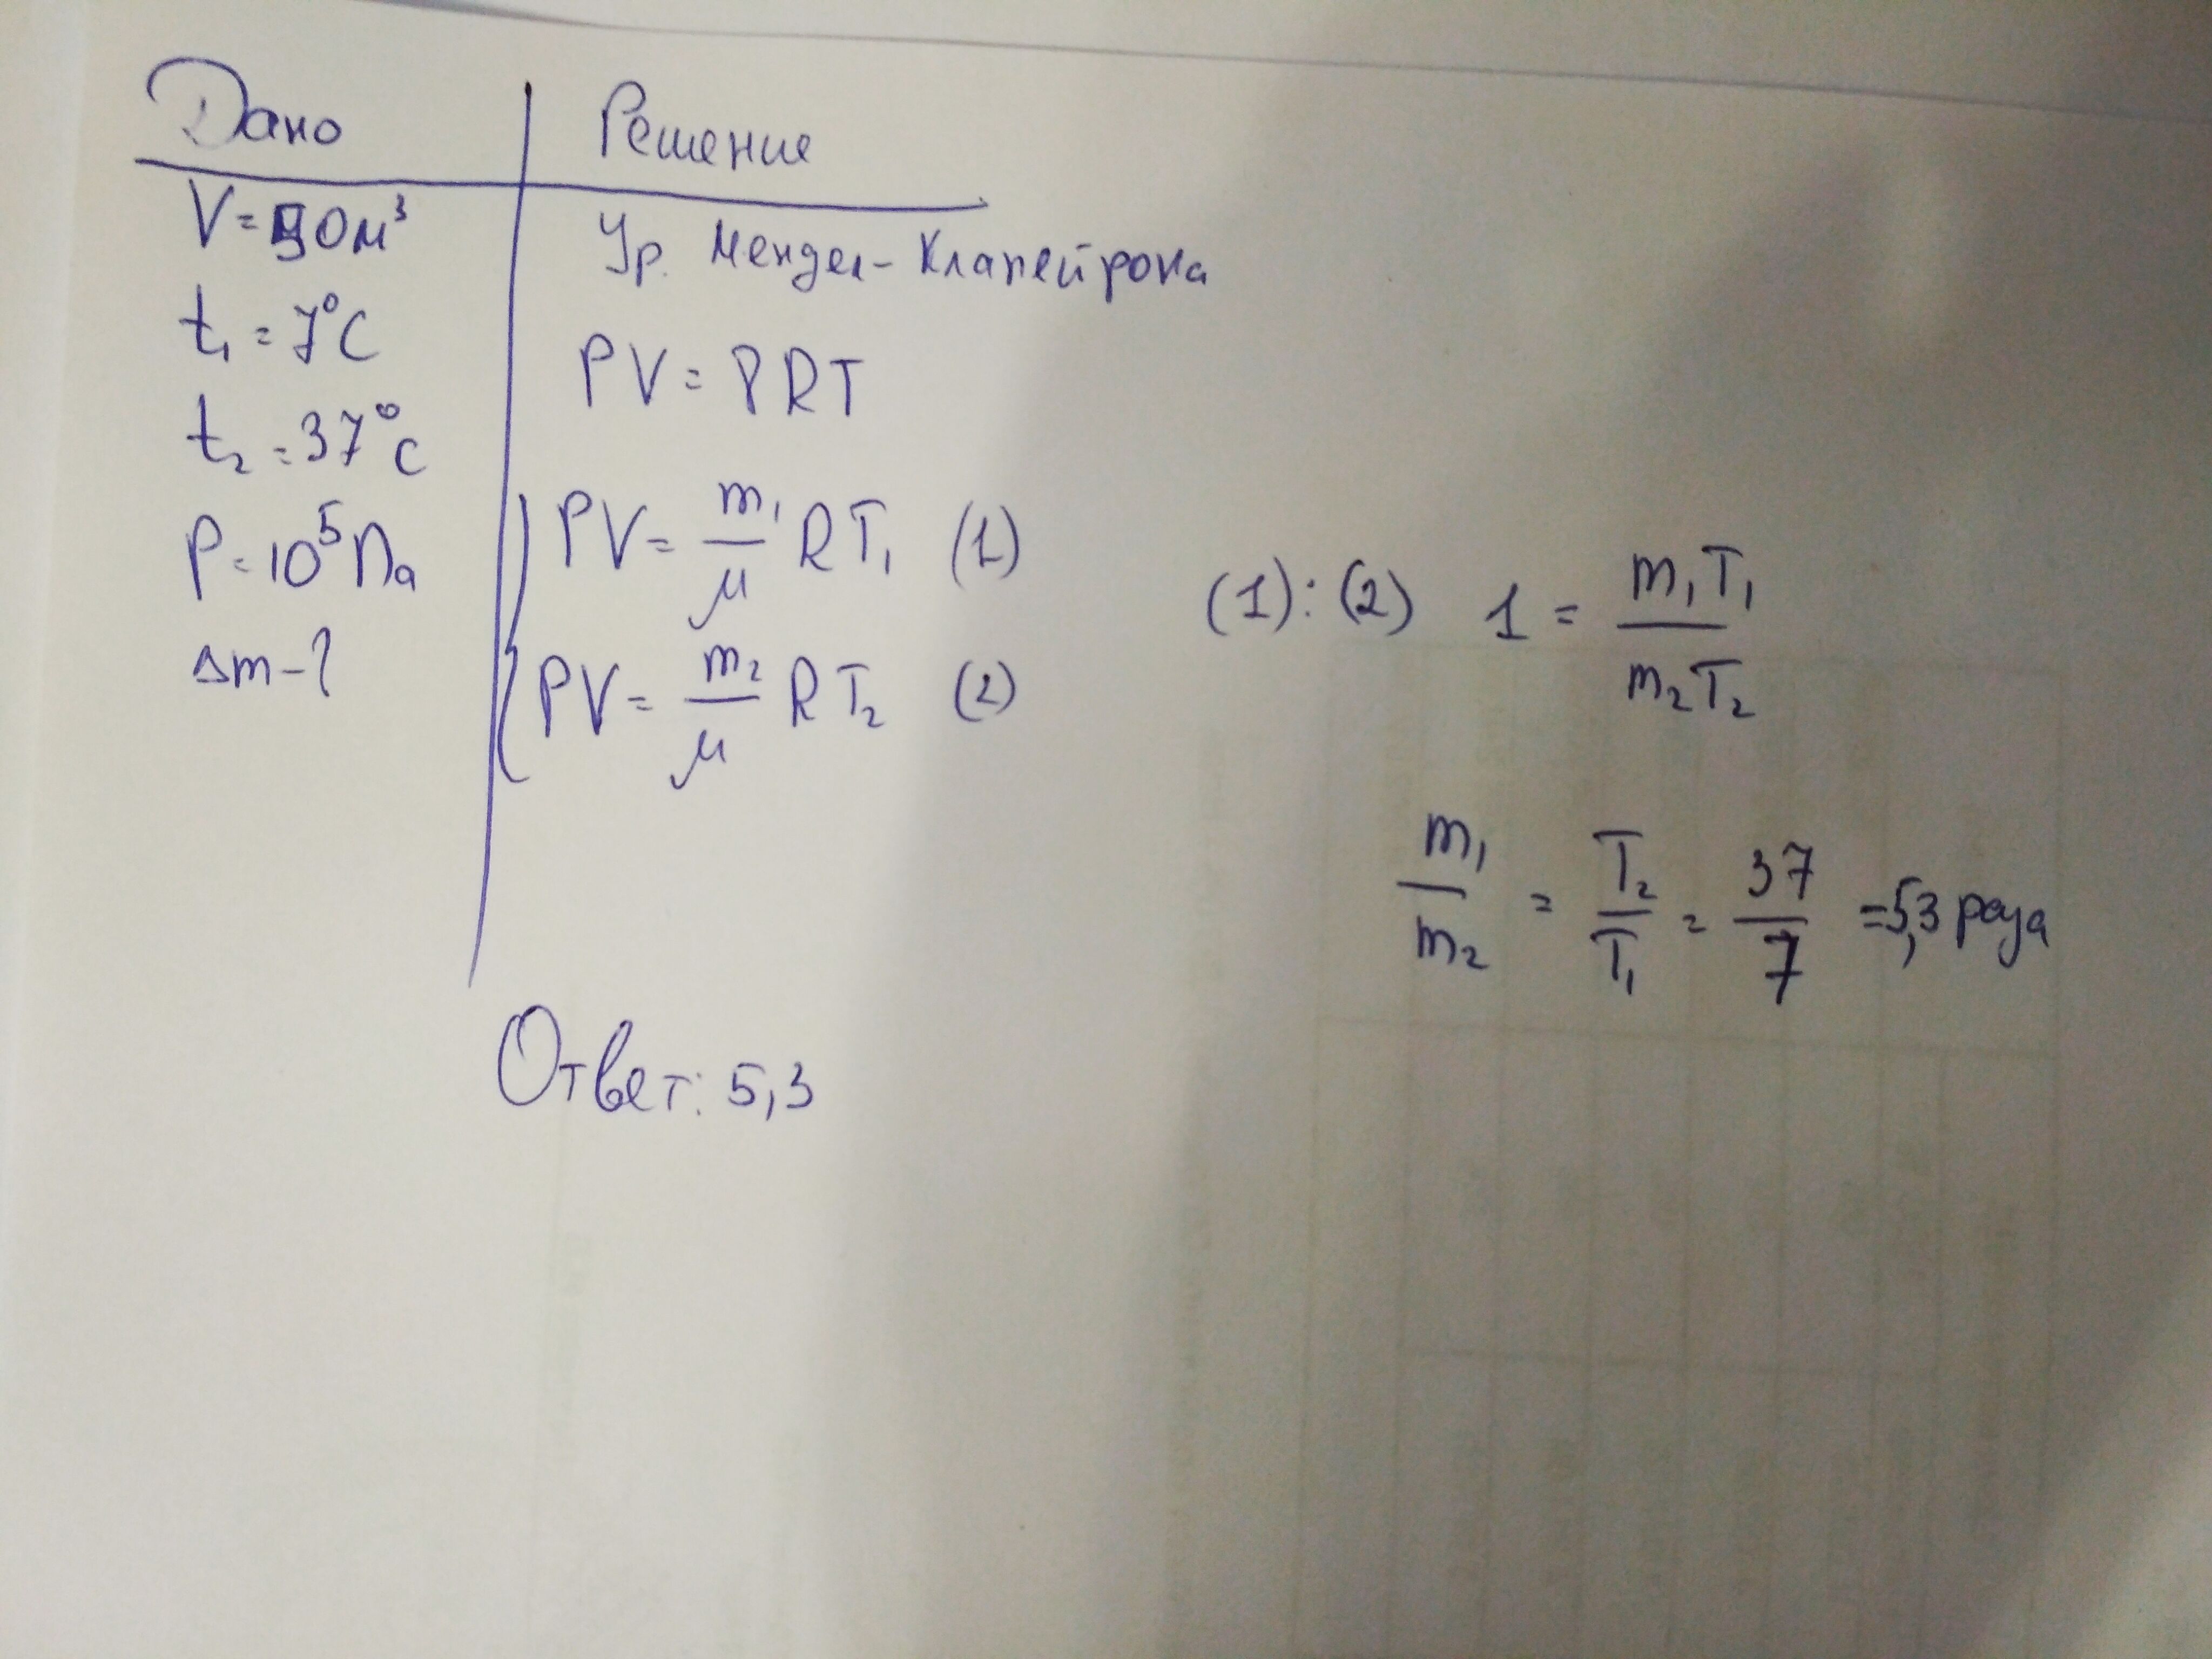 Дано
V = 50 м³
t₁ = 7°C
t₂ = 37°C
P = 10⁵ Па
Δm - ?
Решение
Ур. Мендел - Клапейрона
PV = ϑRT
PV = m₁/μ RT₁ (1)
PV = m₂/μ RT₂ (2)
(1) : (2) 1 = m₁T₁/m₂T₂
m₁/m₂ = T₂/T₁ = 37/7 = 5,3 раза
Ответ: 5,3